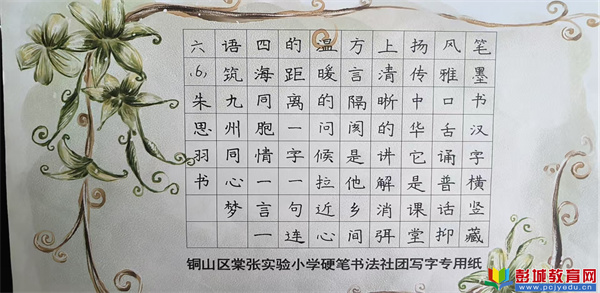 笔墨书汉字横竖藏
风雅口舌诵普话抑
扬传中华它是课堂
上清晰的讲解消弭
方言隔阂是他乡间
温暖的问候拉近心
的距离一字一句连
四海同胞情一言一
语筑九州同心梦
六(6)朱思羽书
铜山区棠张实验小学硬笔书法社团写字专用纸
彭城教育网
www.pcjyedu.cn